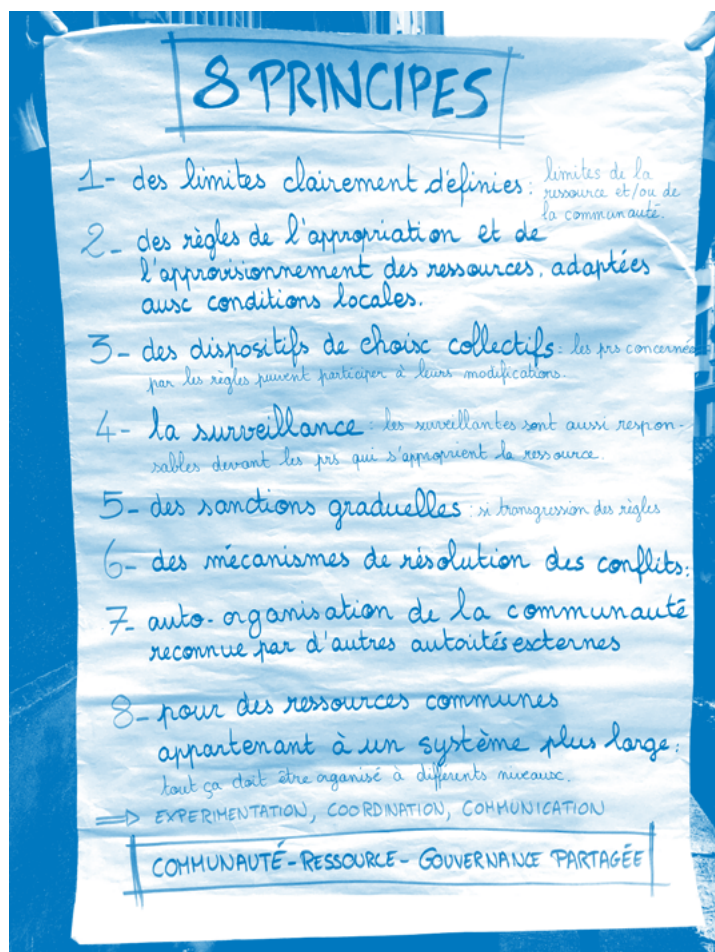 8 PRINCIPES
1- des limites clairement définies : limites de la
ressource et/ou de
la communauté.
2- des règles de l'appropriation et de
l'approvisionnement des ressources, adaptées
aux conditions locales.
3- des dispositifs de choix collectifs : les prs concernées
par les règles peuvent participer à leurs modifications.
4- la surveillance : les surveillantes sont aussi respon-
sables devant les prs qui s'approprient la ressource.
5- des sanctions graduelles : si transgression des règles
6- des mécanismes de résolution des conflits :
7- auto-organisation de la communauté
reconnue par d'autres autoités externes
8- pour des ressources communes
appartenant à un système plus large :
tout ça doit être organisé à différents niveaux.
⇒ EXPERIMENTATION, COORDINATION, COMMUNICATION
COMMUNAUTÉ - RESSOURCE - GOUVERNANCE PARTAGÉE